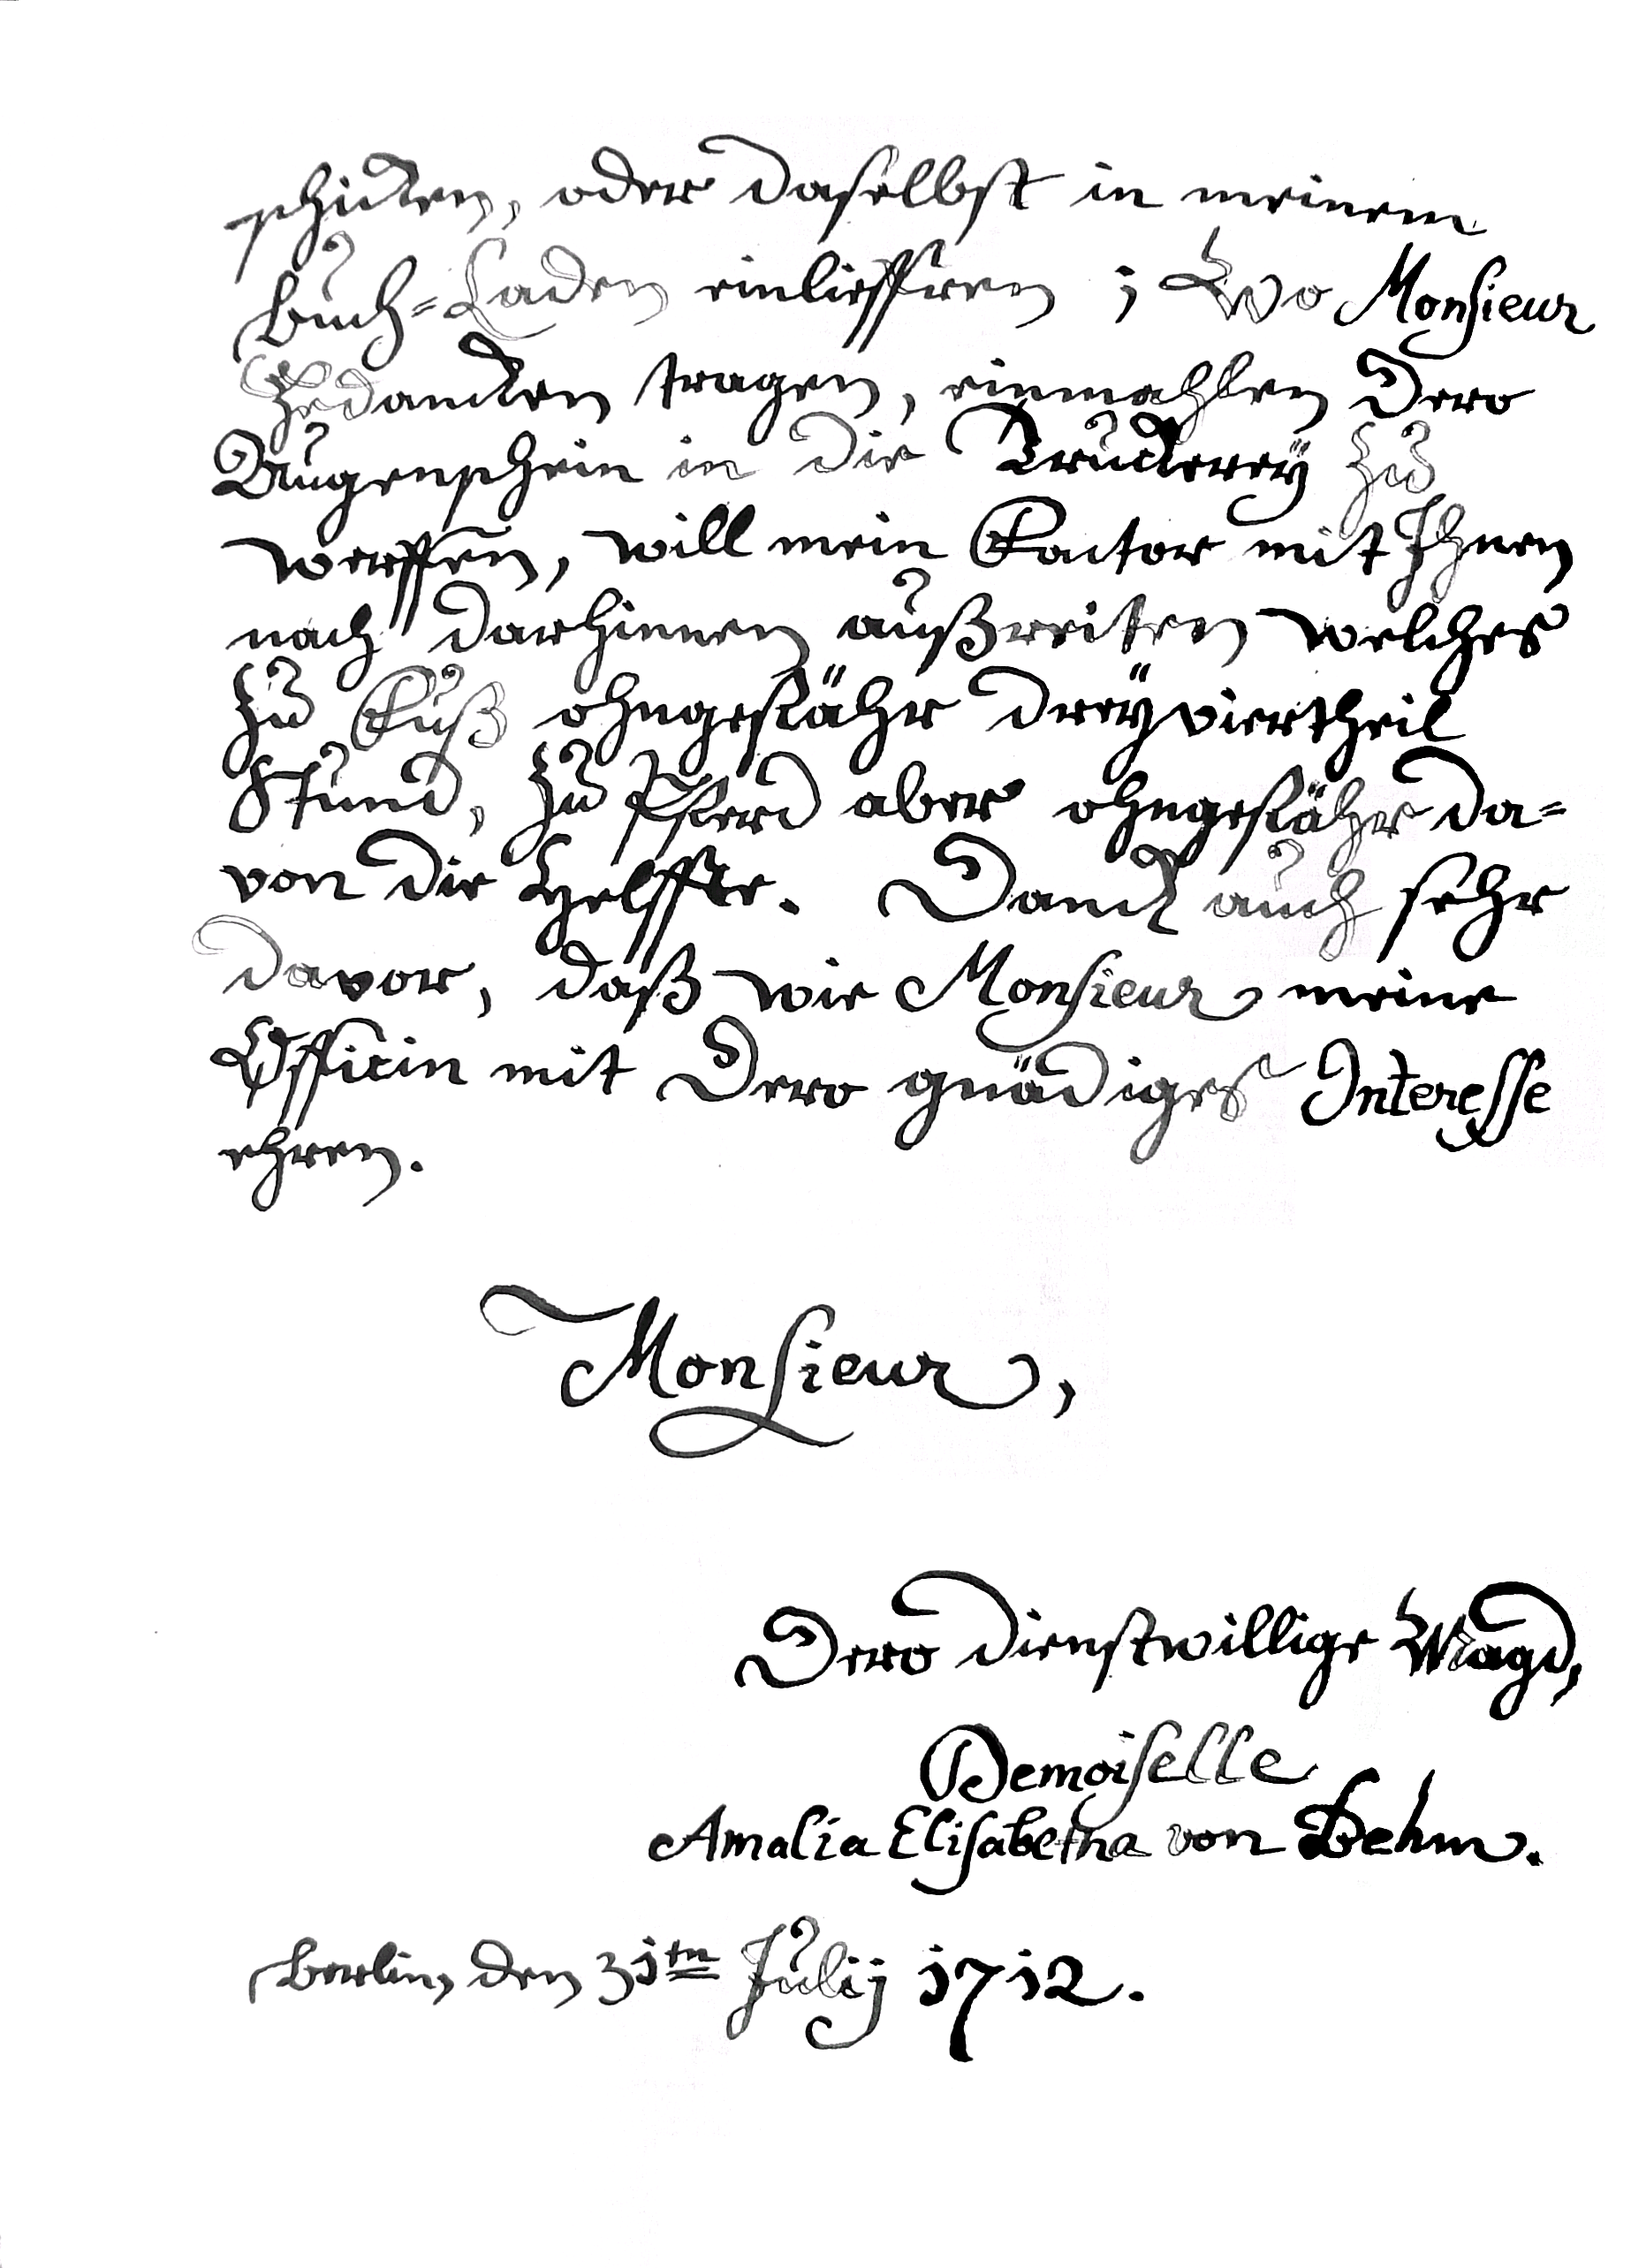 schicken, oder daselbst in meinem
Buch=Laden einlieffren; Wo Monsieur
Gedancken tragen, einmahlen Dero
Augenschein in die Druckerey zu
werffen, will mein Factor mit Ihnen
nach darhinnen außreiten welches
zu Fuß ohngefähr dreyviertheil
Stund, zu Pferd aber ohngefähr da=
von die Helffte. Danck auch sehr
davor, daß wie Monsieur meine
Officin mit Dero gnädiges Interesse
ehren.
Monsieur,
Dero dienstwillige Magd,
Demoiselle
Amalia Elisabetha von Behm.
Berlin, den 31ten Julij 1712.